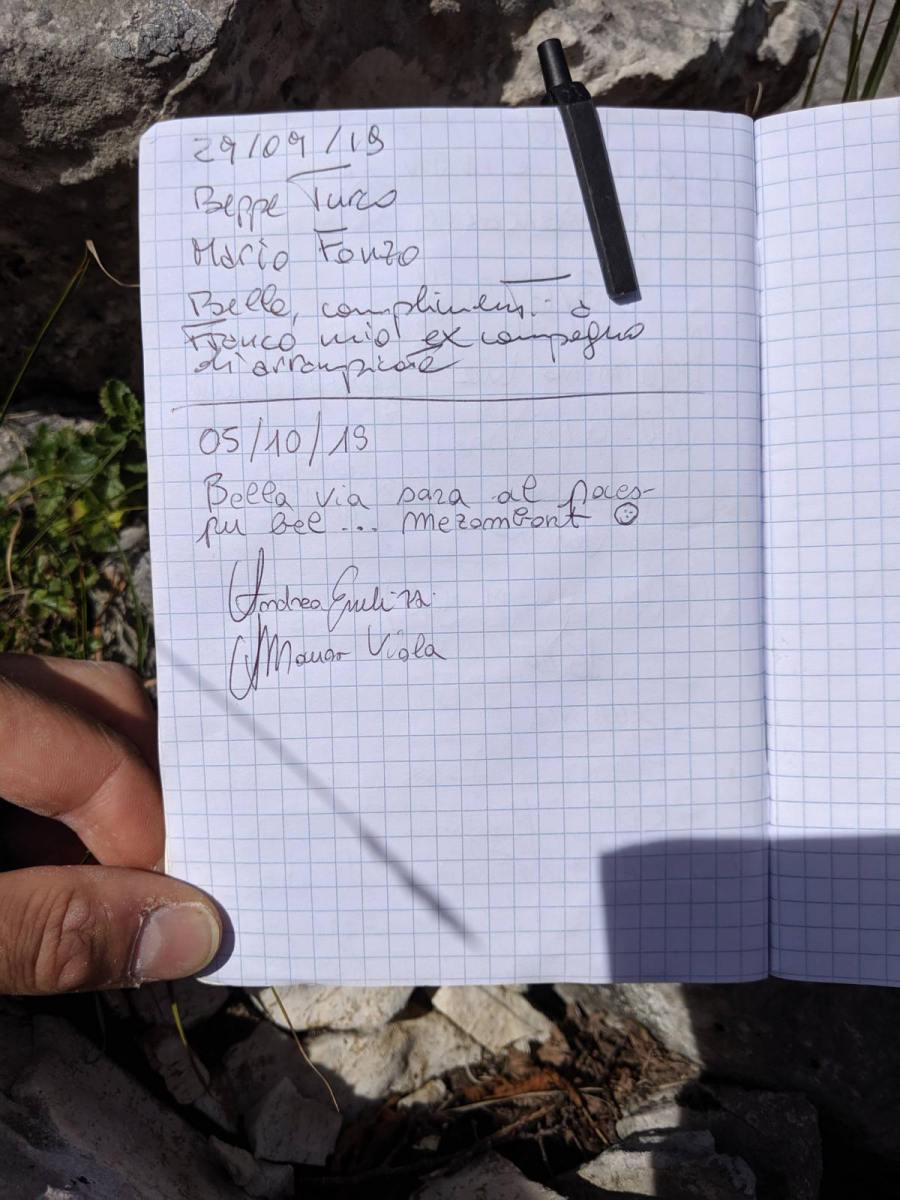 29/09/19
Beppe Turco
Mario Fonzo
Bella, complimenti a
Franco mio ex compagno
di arrampicate
05/10/19
Bella via sora al paes
pu bel ... Mezombont
Andrea
Viola